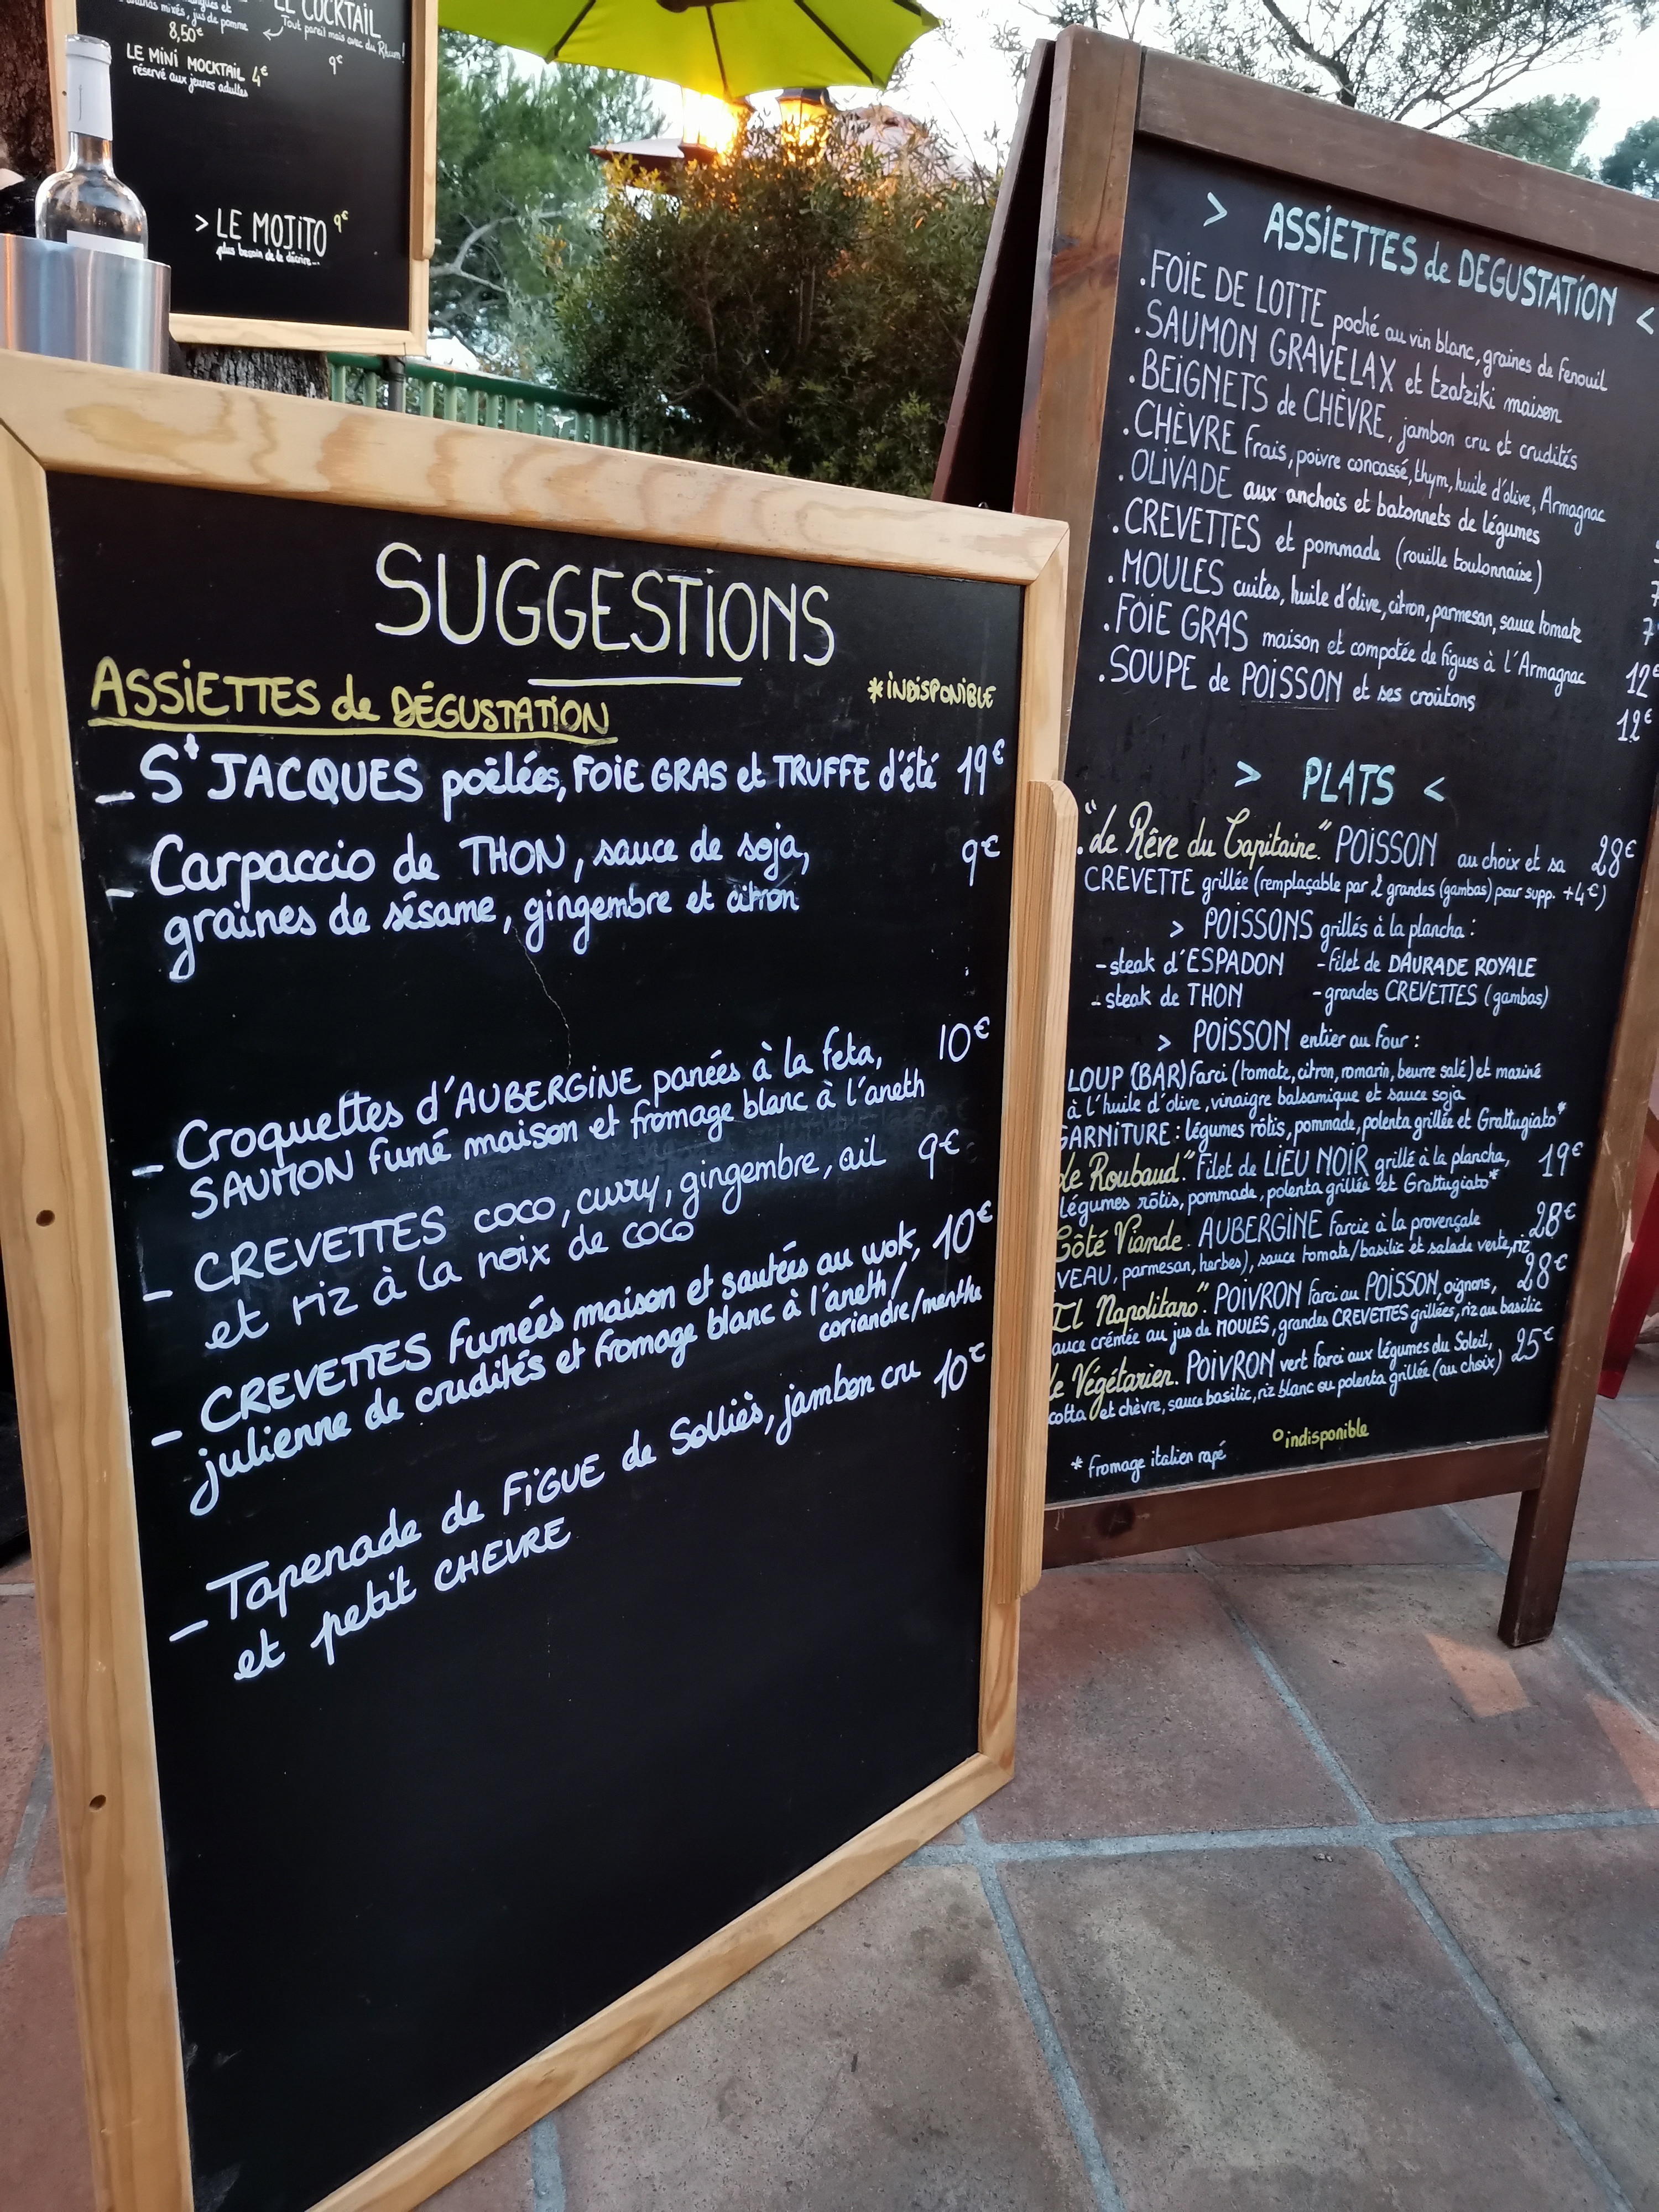 LE COCKTAIL
mixés, jus de pomme
Tout pareil mais avec du Rhum!
8,50€
9€
LE MINI MOCKTAIL 4€
réservé aux jeunes adultes
> LE MOJITO 9€
plus besoin de le décrire...
SUGGESTIONS
ASSIETTES de DÉGUSTATION
*INDISPONIBLE
- St JACQUES poêlées, FOIE GRAS et TRUFFE d'été 19€
- Carpaccio de THON, sauce de soja, 9€
graines de sésame, gingembre et citron
- Croquettes d'AUBERGINE panées à la feta, 10€
SAUMON fumé maison et fromage blanc à l'aneth
- CREVETTES coco, curry, gingembre, ail 9€
et riz à la noix de coco
- CREVETTES fumées maison et sautées au wok, 10€
julienne de crudités et fromage blanc à l'aneth/
coriandre/menthe
- Tapenade de FIGUE de Solliès, jambon cru 10€
et petit CHEVRE
> ASSIETTES de DEGUSTATION <
.FOIE DE LOTTE poché au vin blanc, graines de fenouil
.SAUMON GRAVELAX et tzatziki maison
.BEIGNETS de CHÈVRE, jambon cru et crudités
.CHÈVRE frais, poivre concassé, thym, huile d'olive, Armagnac
.OLIVADE aux anchois et batonnets de légumes
.CREVETTES et pommade (rouille toulonnaise)
.MOULES cuites, huile d'olive, citron, parmesan, sauce tomate
.FOIE GRAS maison et compotée de figues à l'Armagnac 12€
.SOUPE de POISSON et ses croûtons 12€
> PLATS <
."Le Rêve du Capitaine." POISSON au choix et sa 28€
CREVETTE grillée (remplaçable par 2 grandes (gambas) pour supp. +4€)
> POISSONS grillés à la plancha :
-steak d'ESPADON -filet de DAURADE ROYALE
-steak de THON -grandes CREVETTES (gambas)
> POISSON entier au four :
LOUP (BAR) farci (tomate, citron, romarin, beurre salé) et mariné
à l'huile d'olive, vinaigre balsamique et sauce soja
GARNITURE : légumes rôtis, pommade, polenta grillée et Grattugiato*
Le Roubaud." Filet de LIEU NOIR grillé à la plancha, 19€
légumes rôtis, pommade, polenta grillée et Grattugiato*
Côté Viande. AUBERGINE farcie à la provençale 28€
VEAU, parmesan, herbes), sauce tomate/basilic et salade verte, riz
Il Napolitano." POIVRON farci au POISSON, oignons, 28€
auce crémée au jus de MOULES, grandes CREVETTES grillées, riz au basilic
Le Végétarien. POIVRON vert farci aux légumes du Soleil, 25€
cotta et chèvre, sauce basilic, riz blanc ou polenta grillée (au choix)
* fromage italien rapé
°indisponible